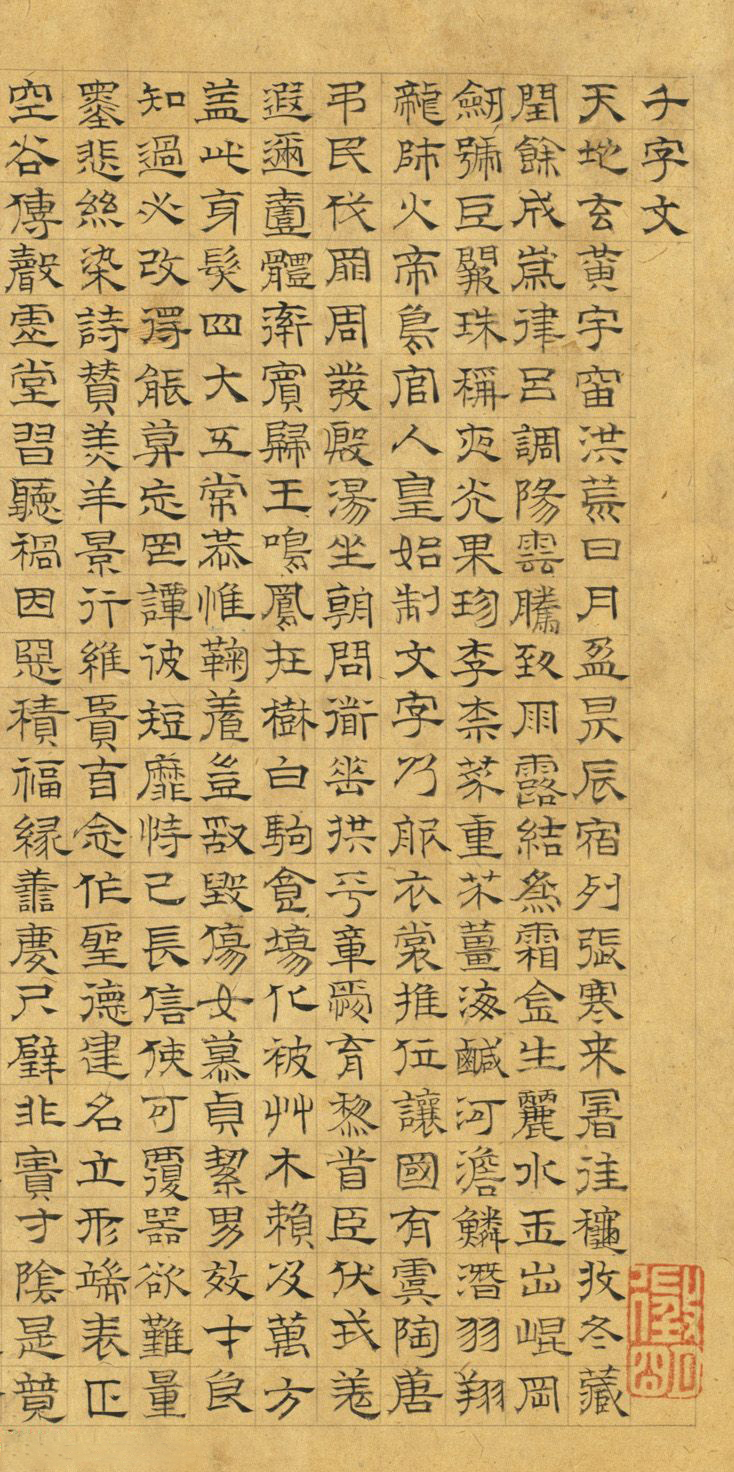 千字文
天地玄黃宇宙洪荒日月盈昃辰宿列張寒来暑往穐收冬藏
閏餘成歲律呂調陽雲騰致雨露結為霜金生麗水玉出崐岡
劒號巨闕珠稱夜光果珍李柰菜重芥薑海鹹河澹鱗潛羽翔
龍師火帝鳥官人皇始制文字乃服衣裳推位讓國有虞陶唐
弔民伐罪周發殷湯坐朝問道垂拱平章愛育黎首臣伏戎羌
遐邇壹體率賓歸王鳴鳳在樹白駒食場化被艸木賴及萬方
盖此身髮四大五常恭惟鞠養豈敢毀傷女慕貞絜男效才良
知過必改得能莫忘罔譚彼短靡恃己長信使可覆器欲難量
墨悲絲染詩賛羔羊景行維賢克念作聖德建名立形端表正
空谷傳聲虛堂習聽禍因惡積福緣善慶尺璧非寶寸陰是競